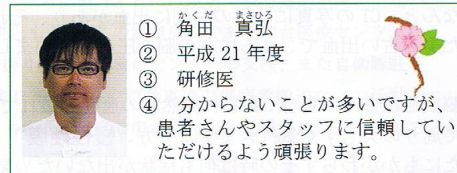 かくだ まさひろ
① 角田 真弘
② 平成21年度
③ 研修医
④ 分からないことが多いですが、
患者さんやスタッフに信頼してい
ただけるよう頑張ります。